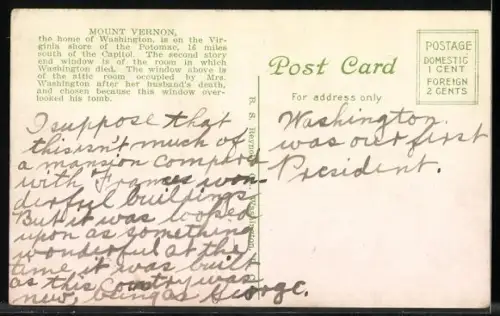 MOUNT VERNON,
the home of Washington, is on the Vir-
ginia shore of the Potomac, 16 miles
south of the Capitol. The second story
end window is of the room in which
Washington died. The window above is
of the attic room occupied by Mrs.
Washington after her husband's death,
and chosen because this window over-
looked his tomb.
I suppose that
this isn't much of
a mansion compared
with Frances won-
derful buildings.
But it was looked
upon as something
wonderful at the
time it was built
as this country was
new, being as George.
B. S. Reynolds Co., Washington,
Post Card
For address only
POSTAGE
DOMESTIC
1 CENT
FOREIGN
2 CENTS
Washington.
was our first
President.